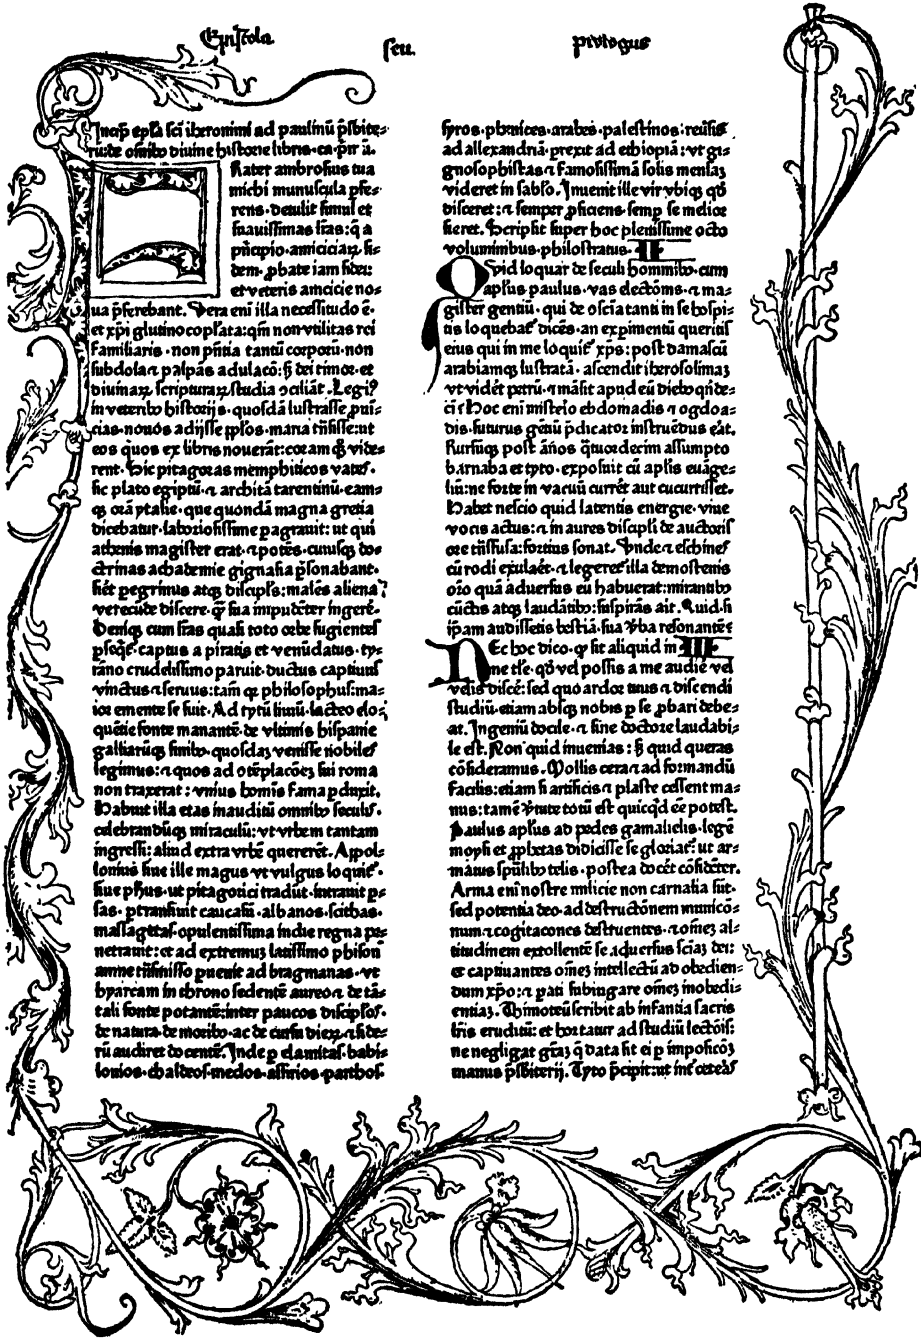 Epistola seu prologus
Incip̄ epl̄a sc̄i iheronimi ad paulinū p̄sbite=
rū: de om̄ibꝰ diuine historie libris. ca. prī ū.
Frater ambrosius tua
michi munuscula p̄fe=
rens. detulit simul et
suauissimas l̄ras: q̄ a
pn̄cipio. amiciciaꝝ fi=
dem. ꝓbate iam fidei:
et veteris amicicie no=
ua p̄ferebant. Vera eni illa necessitudo ē.
et xp̄i glutino copl̄ata: qm̄ non vtilitas rei
familiaris. non pn̄tia tantū corporū. non
subdola ⁊ palpās adulacō: sꝫ dei timor. et
diuinaꝝ scripturaꝝ studia ↄciliāt. Legiꝰ
in veteribꝰ historijs. quosdā lustrasse ꝓui=
cias. nouos adijsse ppl̄os. maria trn̄sisse: ut
eos quos ex libris nouerāt: coram qꝫ vide=
rent. Sic pitagoras memphiticos vates.
sic plato egiptū. ⁊ architā tarentinū. eam=
qꝫ orā ytalie. que quondā magna gretia
dicebatur. laboriosissime ꝑagrauit: ut qui
athenis magister erat. ⁊ potēs. cuiusqꝫ do=
ctrinas achademie gignasia ꝑsonabant.
fiēt ꝑegrinus atqꝫ discipl̄s: malēs aliena
verecūde discere. qꝫ sua impudēter ingerē.
Deniqꝫ cum l̄ras quasi toto orbe fugientes
ꝑseqͭ. captus a piratis et venūdatus. ty=
rāno crudelissimo paruit. ductus captiuus
vinctus ⁊ seruus: tam̄ qꝫ philosophus: ma=
ior emente se fuit. Ad tytū liuiū. lacteo elo=
quētie fonte manantē. de vltimis hispanie
galliarūqꝫ finibꝰ. quosdaꝫ venisse nobiles
legimus: ⁊ quos ad ↄtēplacōeꝫ sui roma
non traxerat: vnius homis fama ꝑduxit.
Habuit illa etas inauditū omnibꝰ seculis.
celebrandūqꝫ miraculū: vt vrbem tantam
ingressi: aliud extra vrbē quererēt. Appol=
lonius siue ille magus vt vulgus loquitͬ.
siue ph̄us. ut pitagorici tradūt. intrauit ꝑ=
sas. ꝑtransiuit caucasū. albanos. scithas.
massagetas. opulentissima indie regna pe=
netrauit: et ad extremus latissimo phison
amne trn̄smisso ꝑuenit ad bragmanas. vt
hyarcam in throno sedentē aureo ⁊ de tā=
tali fonte potantē: inter paucos discipl̄os.
de natura. de moribꝰ. ac de cursu dieꝝ. ⁊ side=
rū audiret docentē. Inde ꝑ elamitas. babi=
lonios. chaldeos. medos. assirios. parthos.
syros. phenices. arabes. palestinos: reūsus
ad allexandriā. ꝑrexit ad ethiopiā: vt gi=
gnosophistas ⁊ famosissimā solis mensaꝫ
videret in sablo. Inuenit ille vir vbiqꝫ qd̄
disceret: ⁊ semper ꝓficiens. semꝑ se melior
fieret. Scripsit super hoc plenissime octo
voluminibus. philostratus. II
Qvid loquar de seculi hominibꝰ. cum
apl̄us paulus. vas electōnis. ⁊ ma=
gister gentiū. qui de ↄsc̄ia tanti in se hospi=
tis loquebat dicēs. an exꝑimentū queritis
eius qui in me loquitͬ xp̄s: post damascū
arabiamqꝫ lustratā. ascendit iherosolimaꝫ
vt vidēt petrū. ⁊ māsit apud eū diebꝰ qn̄de=
cī: Hoc eni misterio ebdomadis ⁊ ogdoa=
dis. futurus gētiū p̄dicator instruēdus eͬat.
Rursūqꝫ post ānos q̄tuordecim assumpto
barnaba et tyto. exposuit cū apl̄is euāge=
liū: ne forte in vacuū currēt aut cucurrisset.
Habet nescio quid latentis energie. viue
vocis actus: ⁊ in aures discipl̄i de auctoris
ore trn̄sfusa: fortius sonat. Vnde ⁊ eschines
cū rodi exulaēt. ⁊ legeretͬ illa demostenis
or̄o quā aduersus eū habuerat: mirantibꝰ
cūctis atqꝫ laudātibꝰ: suspirās ait. Quid si
ipsam audissetis bestiā. sua v̄ba resonantes
Nec hoc dico. qꝫ sit aliquid in III
me tl̄e. qd̄ vel possis a me audire vel
velis discē: sed quo ardor tuus ⁊ discendi
studiū. etiam absqꝫ nobis ꝑ se ꝓbari debe=
at. Ingeniū docile. ⁊ sine doctore laudabi=
le est. Non quid inuenias: sꝫ quid queras
cōsideramus. Mollis cera ⁊ ad formandū
facilis: etiam si artificis ⁊ plaste cessent ma=
nus: tamē v̄tute totū est quicqͥd eē potest.
Paulus apl̄us ad pedes gamalielis. legē
moysi et ꝓphetas didicisse se gloriatͬ: ut ar=
matus spūalibꝰ telis. postea docēt cōfidēter.
Arma eni nostre milicie non carnalia sūt.
sed potentia deo. ad destructōnem municō=
num ⁊ cogitacones destruentes. ⁊ om̄eꝫ al=
titudinem extollentē se. aduersus sciaꝫ dei:
et captiuantes om̄eꝫ intellectū ad obedien=
dum xp̄o: ⁊ ꝑati subiugare om̄eꝫ inobedi=
entiaꝫ. Thimoteū scribit ab infantia sacris
l̄ris eruditū: et hortatur ad studiū lectōis:
ne negligat gr̄aꝫ q̄ data sit ei ꝑ imposicōꝫ
manus p̄sbiterij. Tyto p̄cipit: ut in̄ ceteras